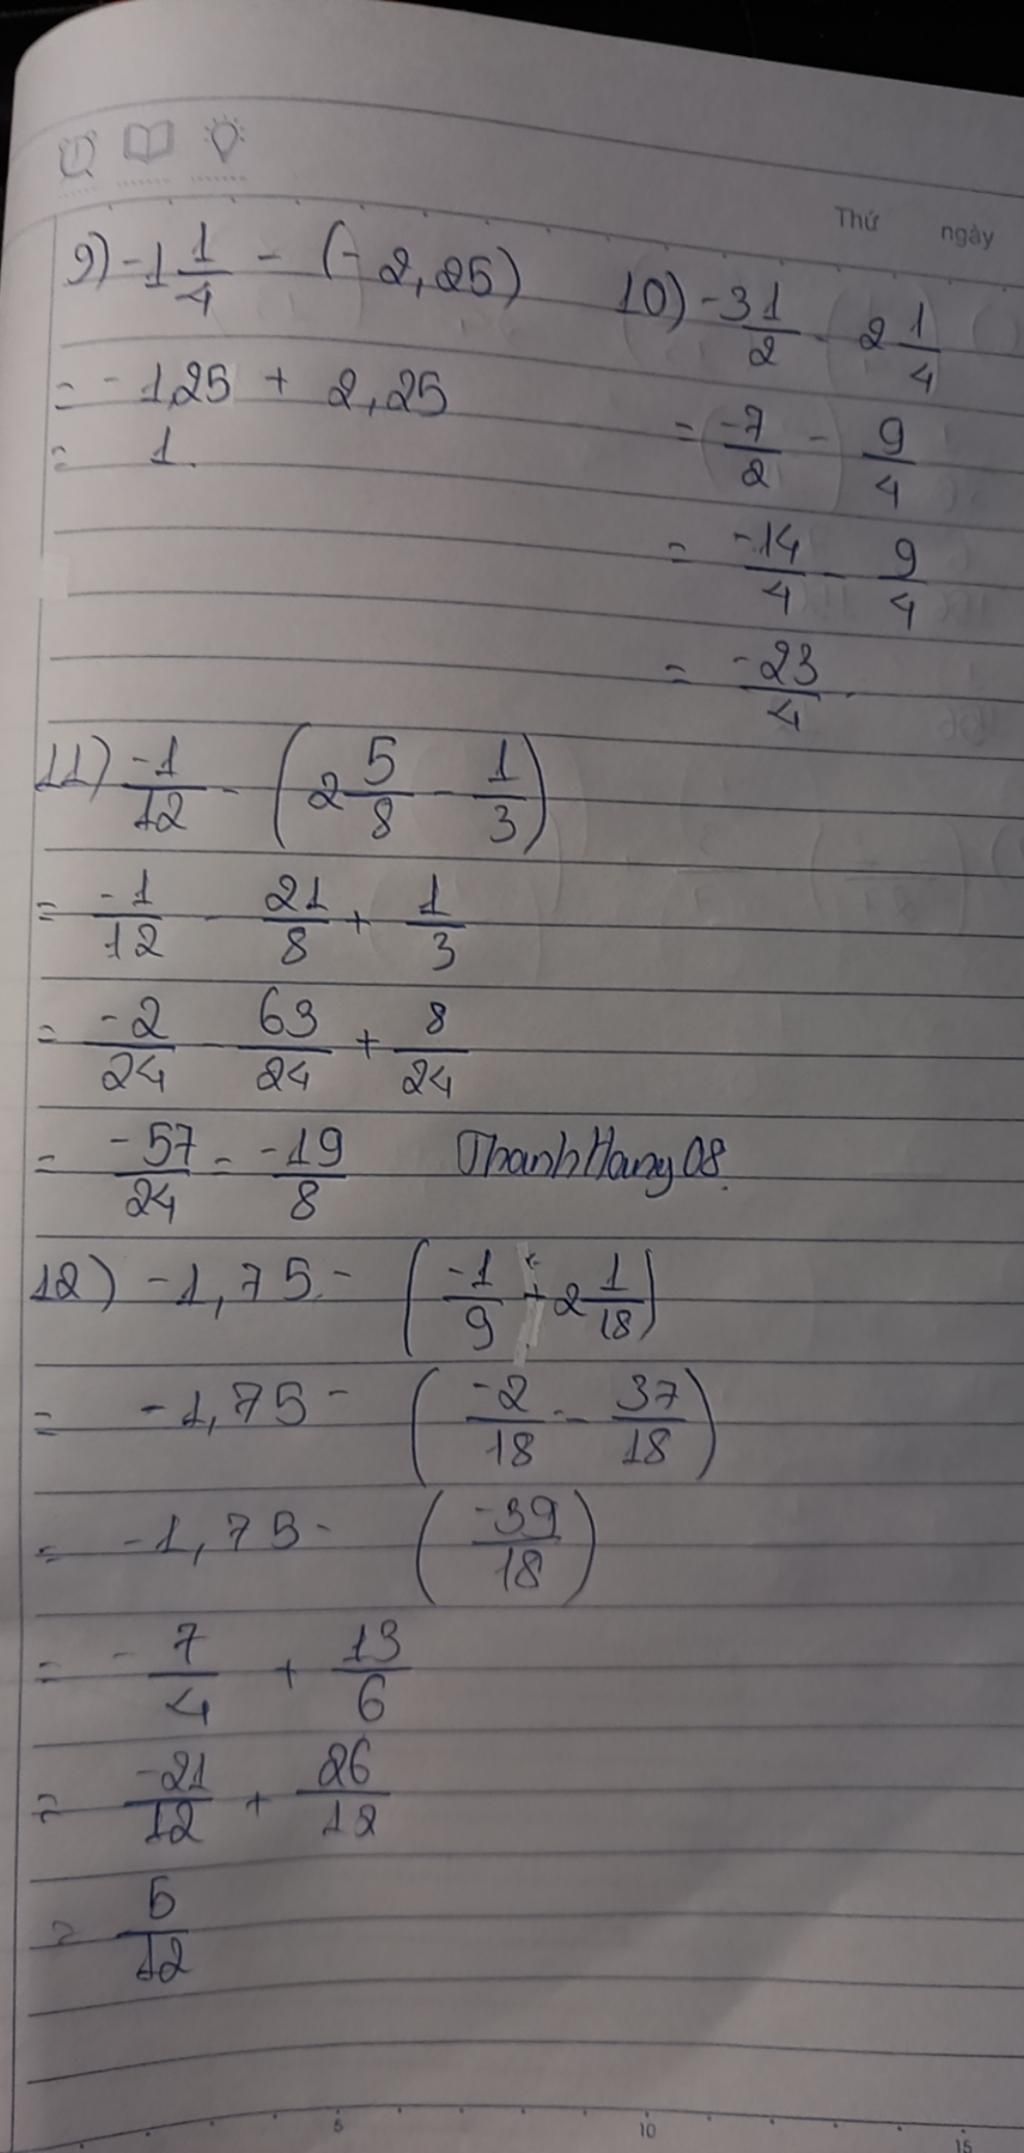 Thứ ngày
9) -1 1/4 - (-2,25)
= -1,25 + 2,25
= 1.
10) -3 1/2 - 2 1/4
= -7/2 - 9/4
= -14/4 - 9/4
= -23/4.
11) -1/12 - (2 5/8 - 1/3)
= -1/12 - 21/8 + 1/3
= -2/24 - 63/24 + 8/24
= -57/24 = -19/8 ThanhHang08.
12) -1,75 - (-1/9 - 2 1/18)
= -1,75 - (-2/18 - 37/18)
= -1,75 - (-39/18)
= -7/4 + 13/6
= -21/12 + 26/12
= 5/12
5 10 15